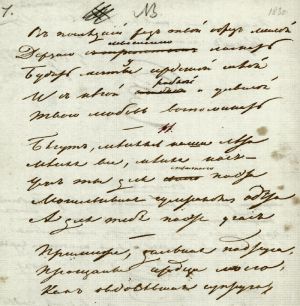 1. NB 1830
Въ последній разъ твой образъ милой
Дерзаю мысленно ласкать
Будить мечту сердечной силой
И съ нѣгой робкой и унылой
Твою любовь воспоминать
Бегутъ, меняясь наши лета
Меняя все, меняя насъ
Ужъ ты для страстнаго поэта
Могильнымъ сумракомъ одета
А для тебя поэтъ угасъ
Прими же, дальная подруга,
Прощанье сердца моего,
Какъ овдовевшая супруга,